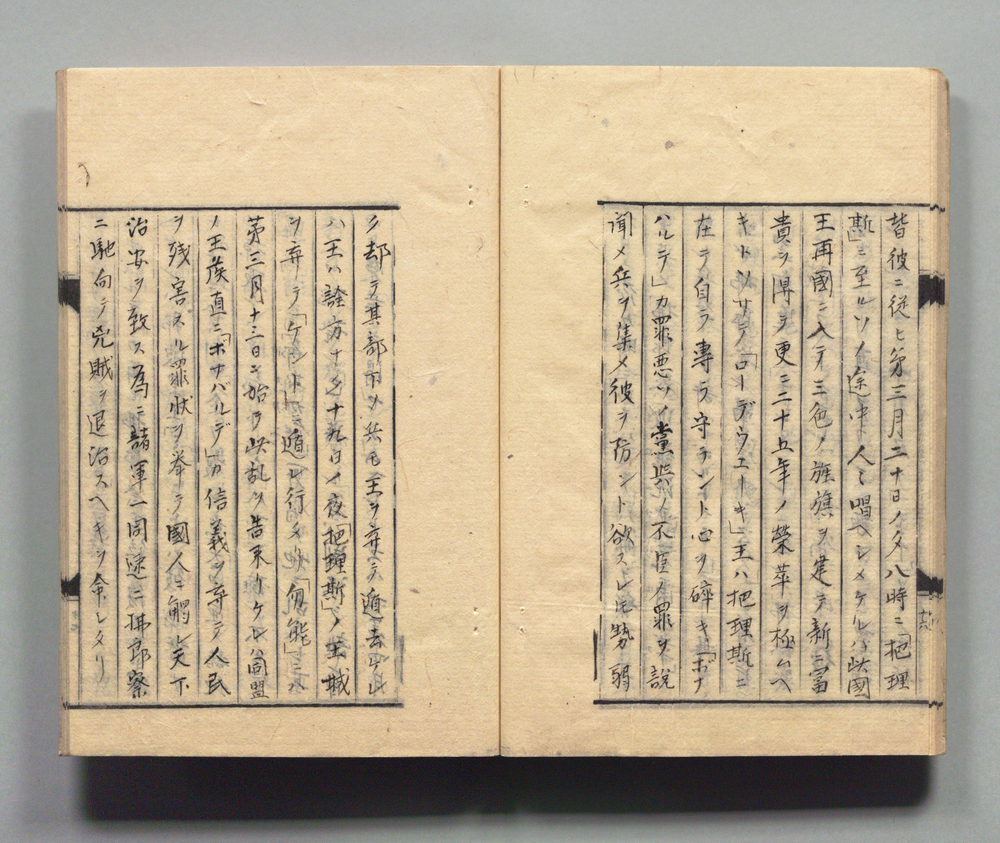 皆彼ニ従ヒ第三月二十日ノ夕八時ニ「把理
斯」ニ至ルソノ途中人ニ唱ヘシメケルハ此國
王再國ニ入テ三色ノ旌旗ヲ建テ新ニ冨
貴ヲ得テ更ニ三十五年ノ榮華ヲ極ムヘ
キトソサテ「ローデウエーキ」王ハ把理斯ニ
在テ自ラ專ラ守ランド心ヲ碎キ「ボナ
ハルテ」カ罪悪ソノ黨與ノ不臣ノ罪ヲ説
聞メ兵ヲ集メ彼ヲ防ント欲スレ𪜈勢弱
ク却テ其部下ノ兵モ王ヲ弃テ遁去
ハ王ハ詮方ナク十九日ノ夜「把理斯」ノ王城
ヲ弃テ「ゲント」ニ遁レ行メリ「勿能」ニハ
第三月十三日ニ始テ此乱ヲ告来リケレハ同盟
ノ王侯直ニ「ボナバルデ」カ信義ヲ弃テ人民
ヲ残害スル罪状ヲ挙テ國人ニ觸レ天下
治安ヲ致ス為ニ諸軍一同速ニ拂郎察
ニ馳向テ兇賊ヲ退治スヘキヲ命シタリ